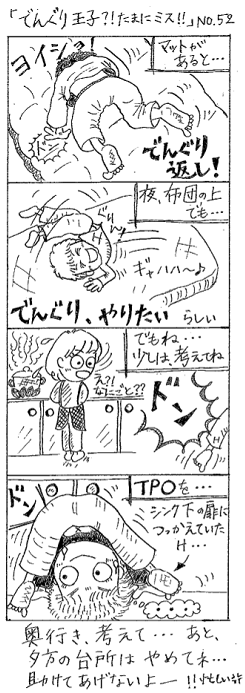 「でんぐり王子?!たまにミス!!」NO.52
マットが
あると…
ヨイショ!
ドン
でんぐり
返し!
夜、布団の上
でも…
ぐりん
ギャハハ〜♪
でんぐり、やりたい らしい
でもね…
少しは、考えてね
え?!
なにごと??
ドン
TPOを…
シンク下の扉に
つっかえていた
け…
ドン
奥行き、考えて… あと、
夕方の台所は やめてネ…
助けてあげないよー!!忙しい時